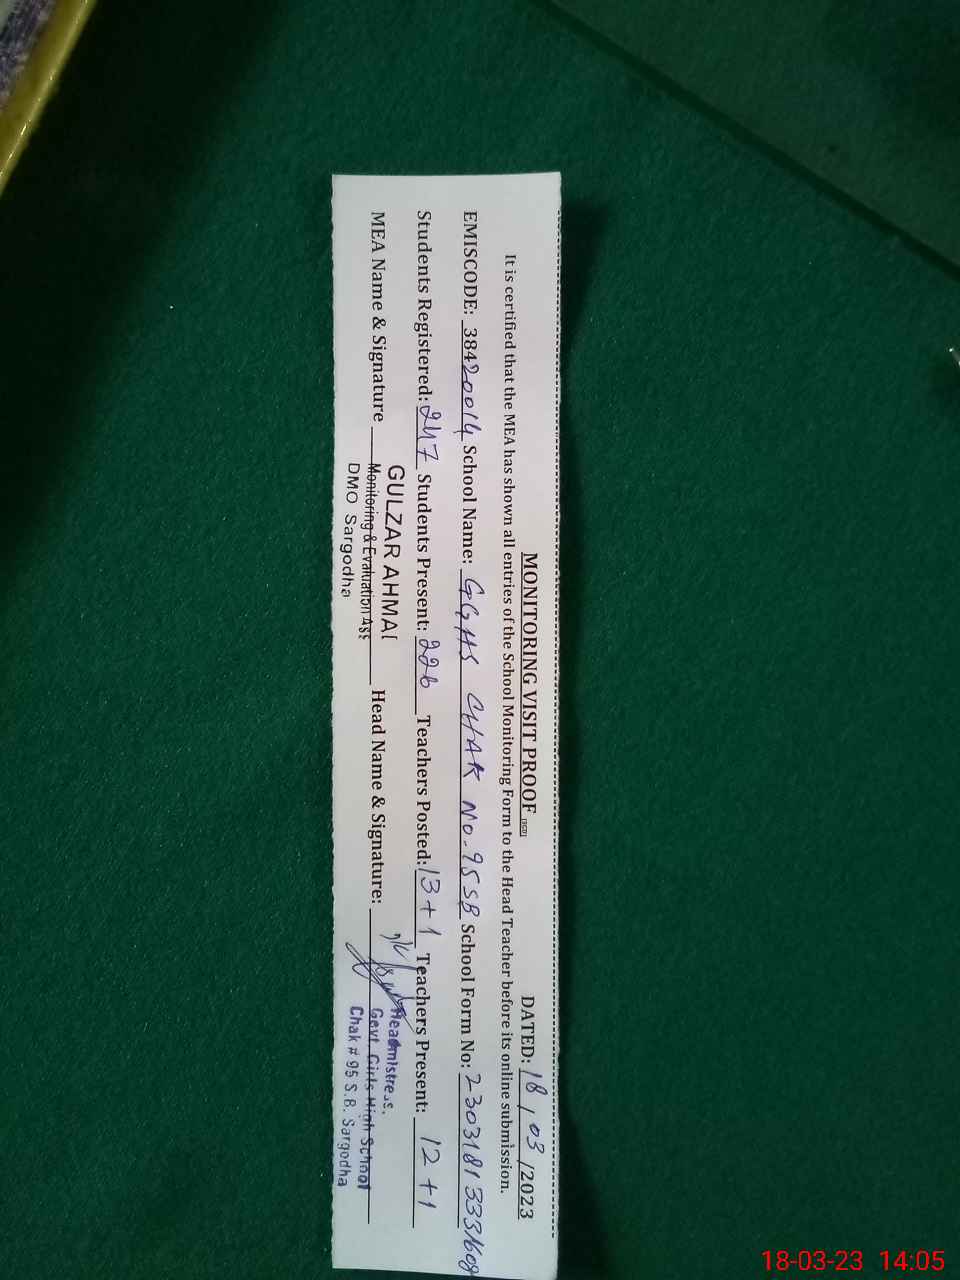 MONITORING VISIT PROOF DATED: 18/03/2023
It is certified that the MEA has shown all entries of the School Monitoring Form to the Head Teacher before its online submission.
EMISCODE: 38420014 School Name: GGHS CHAK No-95 SB School Form No: 23031813331608
Students Registered: 247 Students Present: 226 Teachers Posted: 13+1 Teachers Present: 12+1
MEA Name & Signature Head Name & Signature:
GULZAR AHMA
Monitoring & Evaluation Ass
DMO Sargodha
Headmistress.
Govt. Girls High School
Chak # 95 S.B. Sargodha
18-03-23 14:05